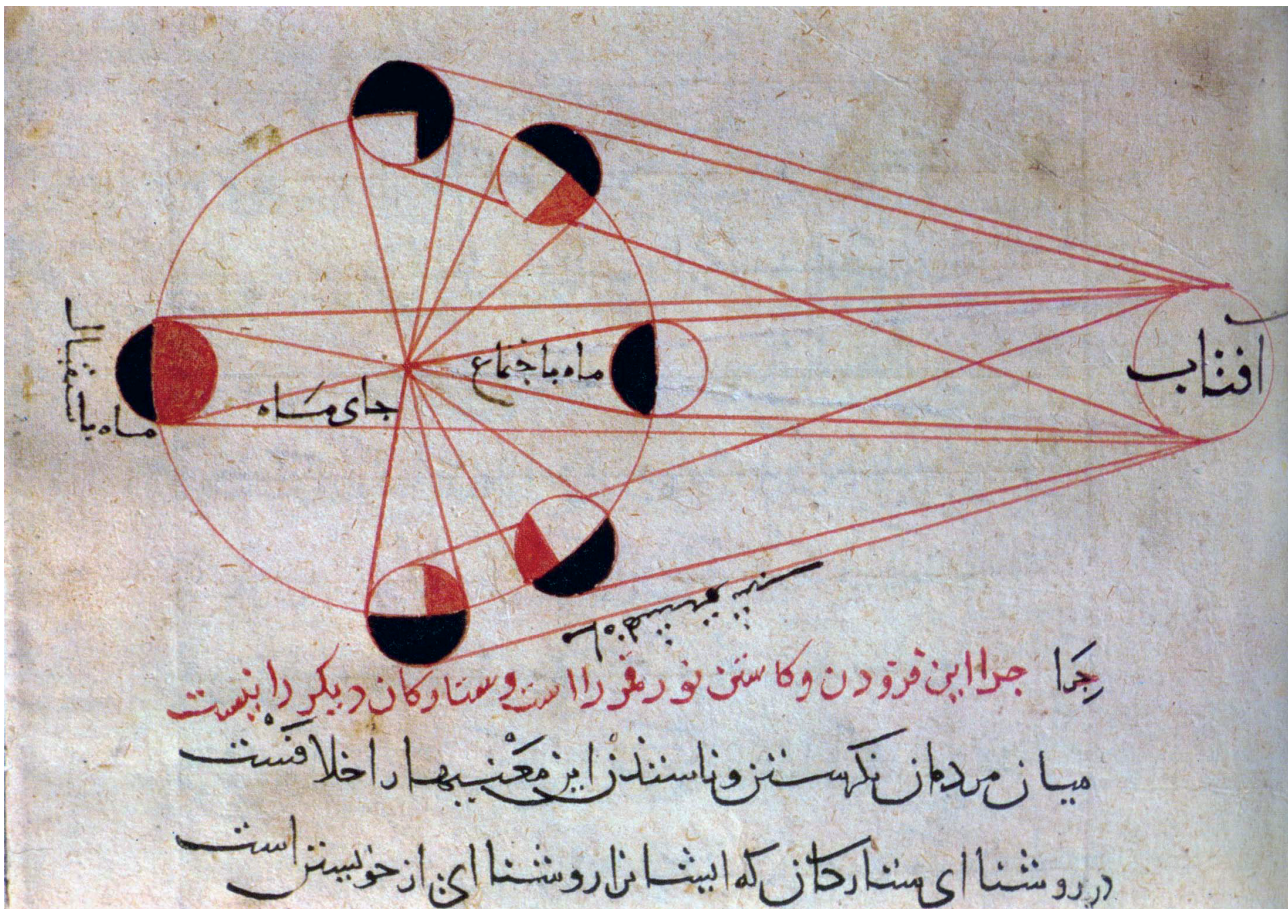 افتاب
ماه باجتماع
جای ماه
ماه باستقبال
جرا جرا این فزودن وکاستن نور قمر را است وستارکان دیکر را نیست
میان مردمان نکرستن این معنیها را خلافست
در روشنا ای ستارکان که ایشانرا روشنا ای از خویشتن است